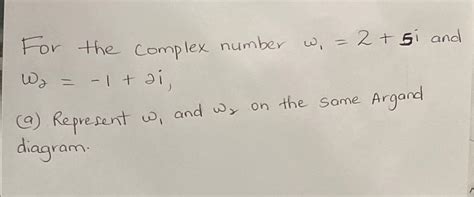 For the complex number w₁ = 2 + 5i and
w₂ = -1 + 2i,
(a) Represent w₁ and w₂ on the same Argand
diagram.